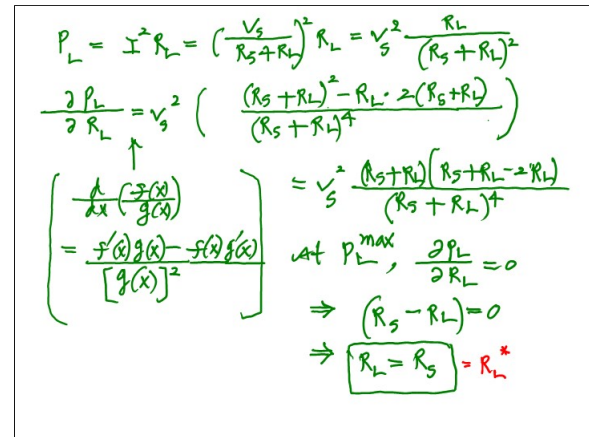 P_L = I²R_L = (V_S / (R_S + R_L))² R_L = V_S² R_L / (R_S + R_L)²
∂P_L / ∂R_L = V_S² ( ((R_S + R_L)² − R_L · 2(R_S + R_L)) / (R_S + R_L)⁴ )
↑
[ d/dx ( f(x) / g(x) )
= (f'(x) g(x) − f(x) g'(x)) / [g(x)]² ]
= V_S² (R_S + R_L)(R_S + R_L − 2R_L) / (R_S + R_L)⁴
At P_L^max, ∂P_L / ∂R_L = 0
⇒ (R_S − R_L) = 0
⇒ R_L = R_S = R_L*